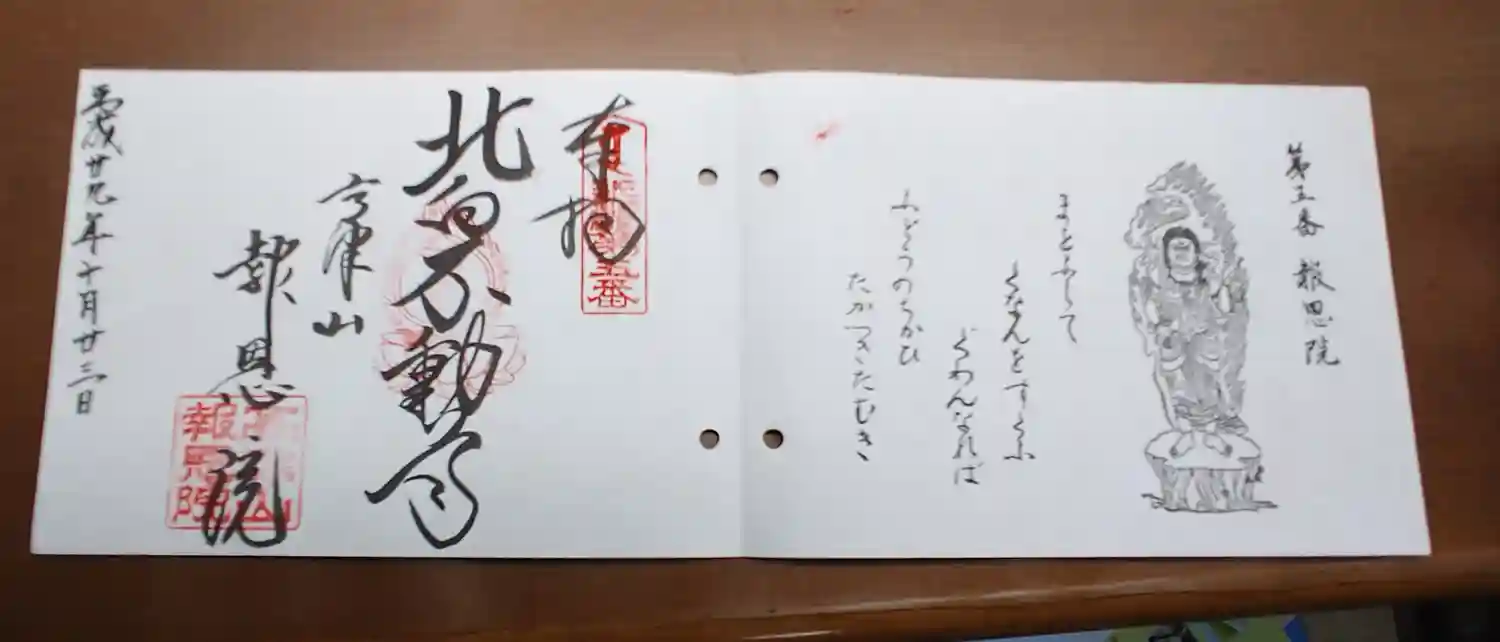 第五番 報恩院
まとふして
くなんをすくふ
ぐわんなれば
ふどうのちかひ
たかつきたむき
奉拝
五番
北向不動尊
高津山
報恩院
平成廿九年十月廿三日